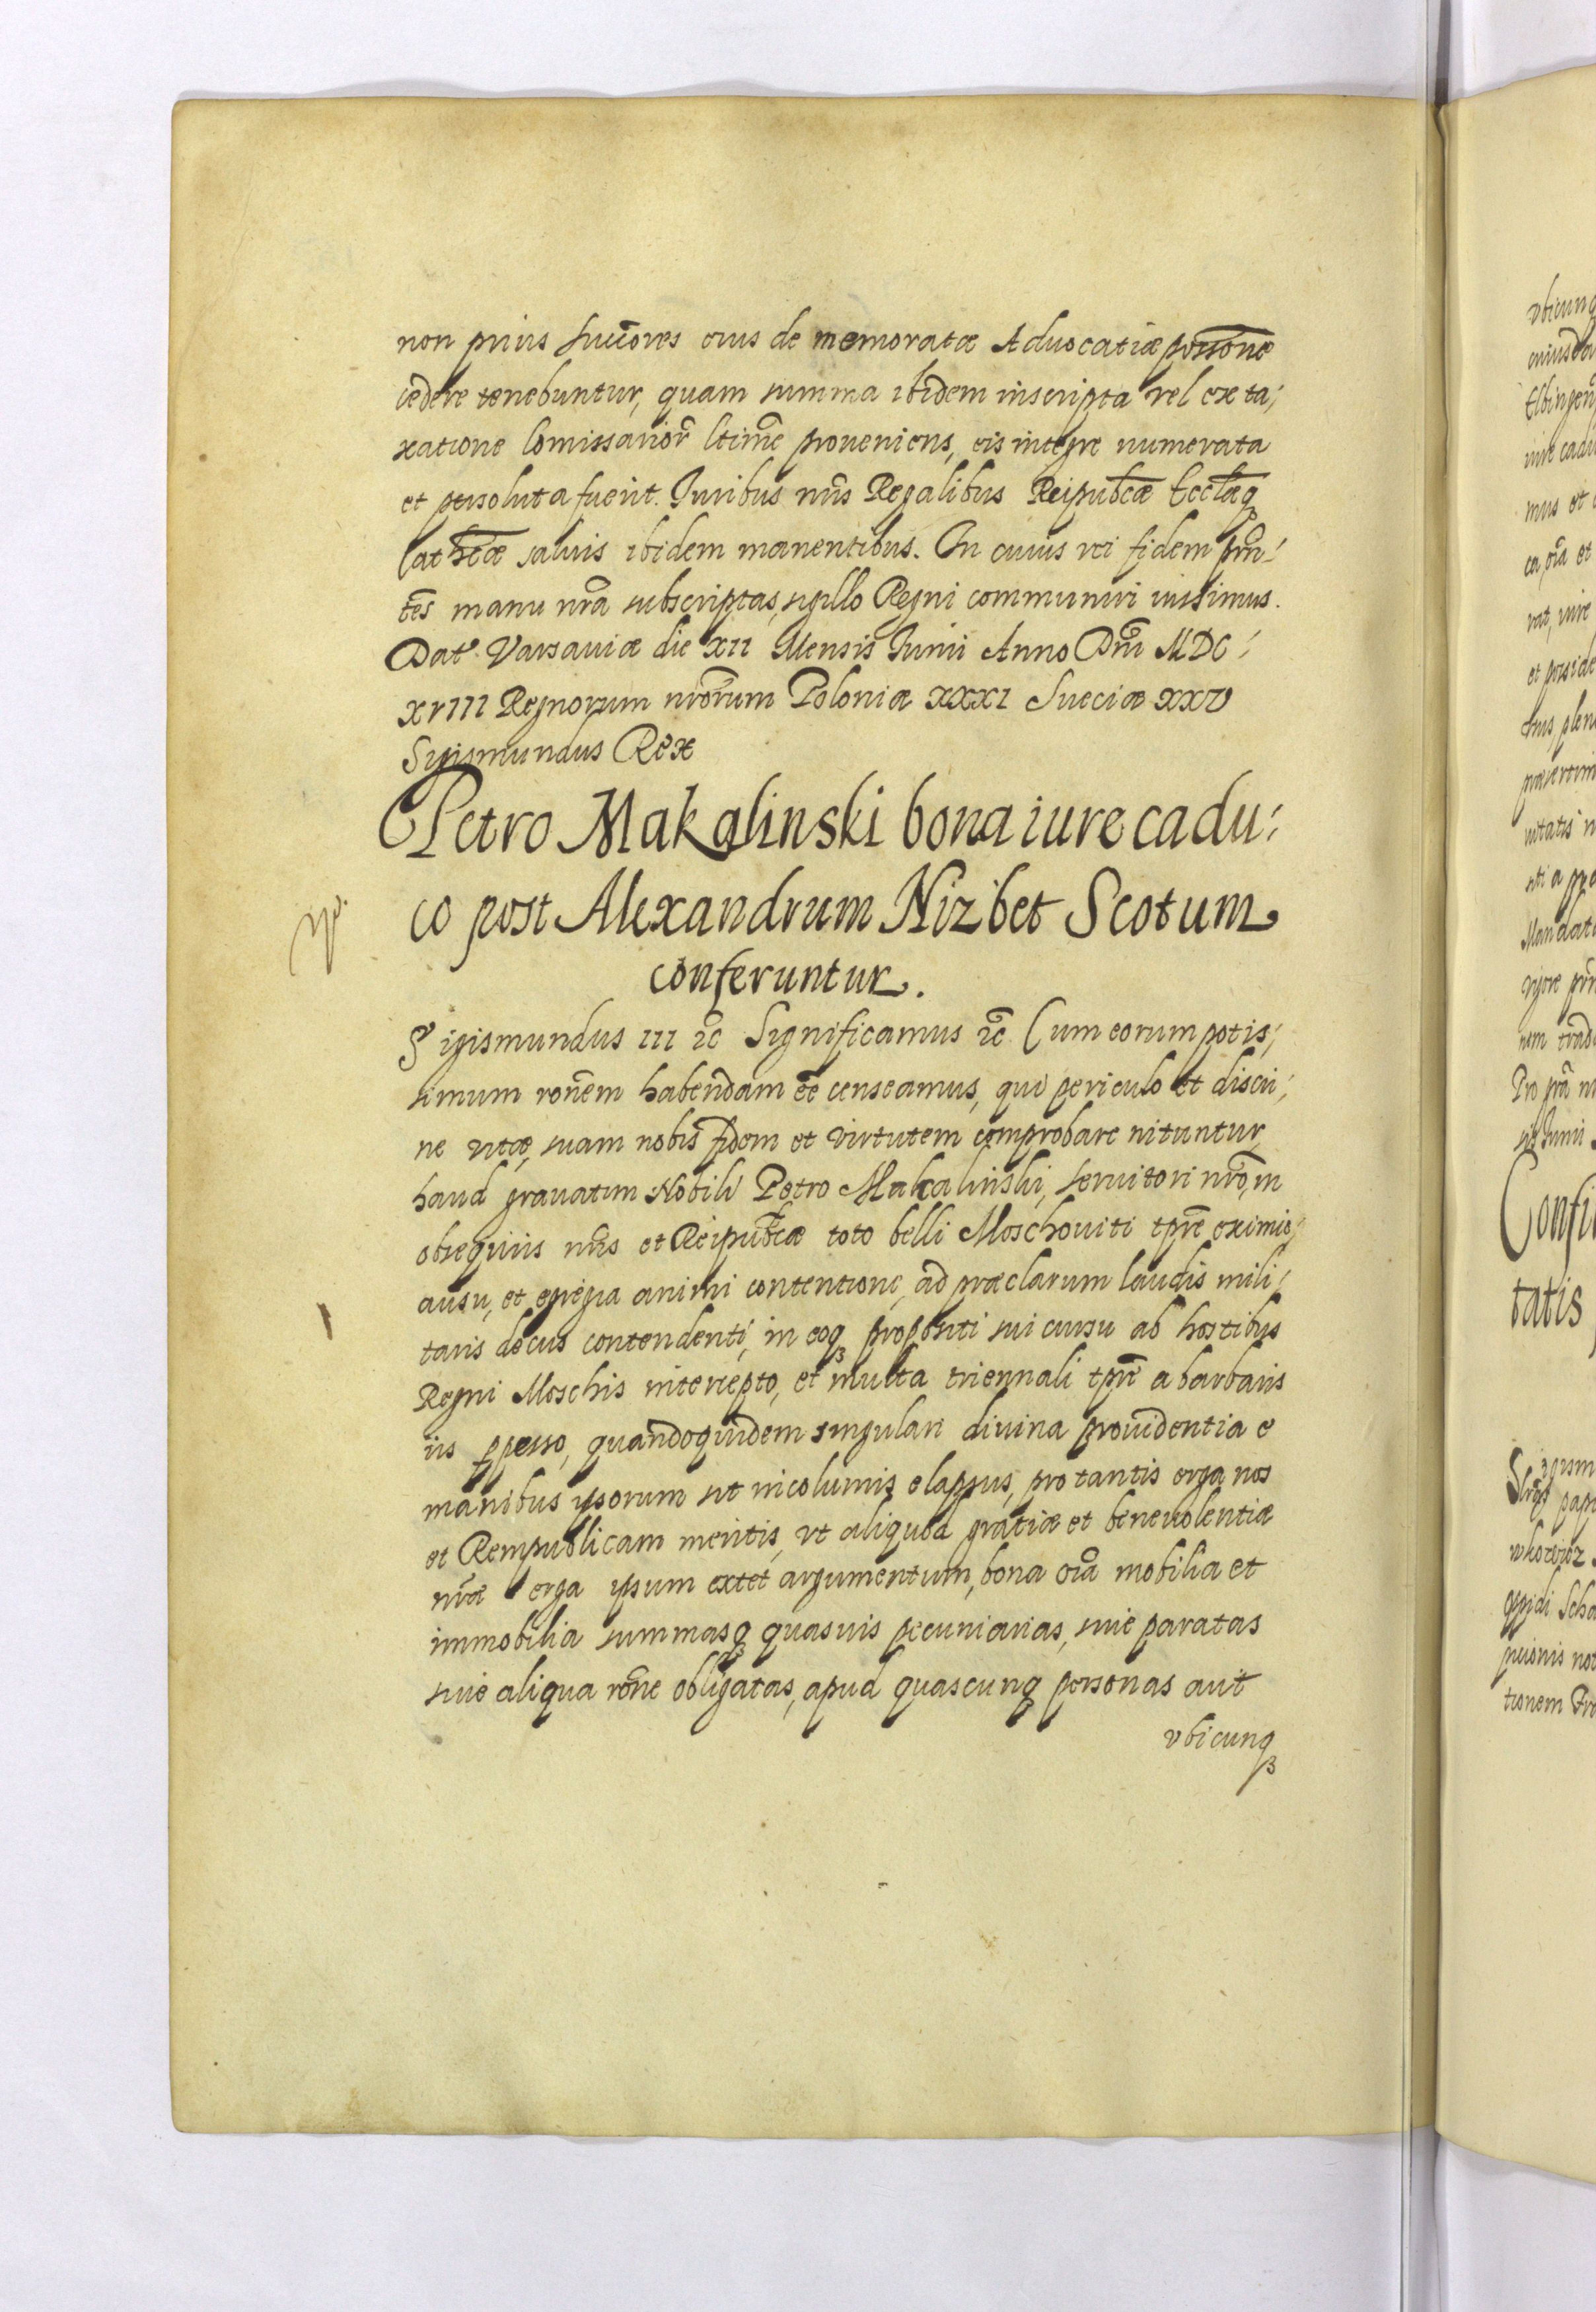 non prius succores eius de memoratæ Advocatiæ possone
cedere tenebuntur, quam summa ibidem inscripta vel ex ta,
xatione Comissarior ltime proueniens, eis integre numerata
et persoluta fuerit. Juribus nris Regalibus Reipubcæ Eccleæq
Cathcæ saluis ibidem manentibus. In cuius rei fidem prn,
tes manu nra subscriptas, sigillo Regni communiri iussimus.
Dat Varsauiæ die XII Mensis Junii Anno Dni MDC,
XVIII Regnorum nrorum Poloniæ XXXI Sueciæ XXV
Sigismundus Rex
Petro Makalinski bona iure cadu,
co post Alexandrum Nizbet Scotum
conferuntur.
Sigismundus III &c Significamus &c Cum eorum potis,
simum ronem habendam ee censeamus, qui periculo et discri,
ne vitæ, suam nobis fidem et virtutem comprobare nituntur
haud grauatim Nobili Petro Makalinski, seruitori nro, in
obsequiis nris et Reipubcæ toto belli Moschouiti tpre eximio,
ausu, et egregia animi contentione, ad præclarum laudis mili,
taris decus contendenti, in eoq propositi sui cursu ab hostibus
Regni Moschis intercepto, et multa triennali tpre a barbaris
iis ppesso, quandoquidem singulari diuina prouidentia e
manibus ipsorum sit incolumis elapsus, pro tantis erga nos
et Rempublicam meritis, vt aliquod gratiæ et beneuolentiæ
nræ erga ipsum extet argumentum, bona oia mobilia et
immobilia summasq quasuis pecuniarias, siue paratas
siue aliqua rone obligatas, apud quascunq personas aut
vbicunq